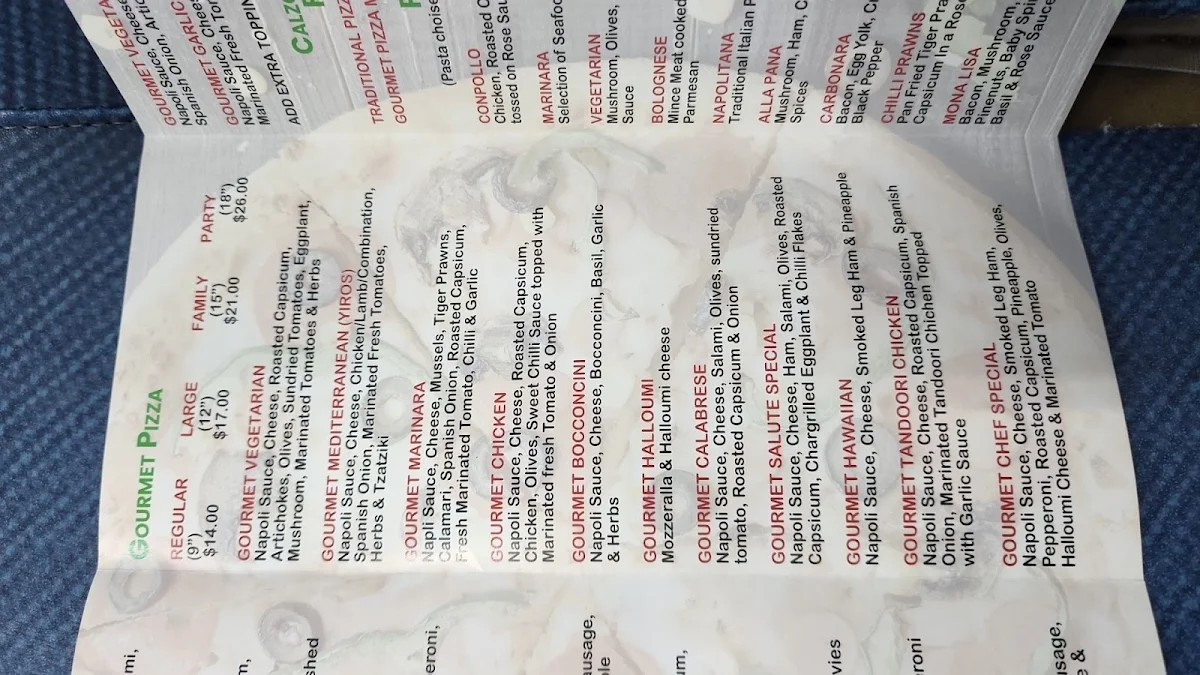 mi,
m,
shed
eroni,
usage,
ole
um,
vies
eroni
usage,
e &
GOURMET PIZZA
REGULAR LARGE FAMILY PARTY
(9") (12") (15") (18")
$14.00 $17.00 $21.00 $26.00
GOURMET VEGETARIAN
Napoli Sauce, Cheese, Roasted Capsicum,
Artichokes, Olives, Sundried Tomatoes, Eggplant,
Mushroom, Marinated Tomatoes & Herbs
GOURMET MEDITERRANEAN (YIROS)
Napoli Sauce, Cheese, Chicken/Lamb/Combination,
Spanish Onion, Marinated Fresh Tomatoes,
Herbs & Tzatziki
GOURMET MARINARA
Napli Sauce, Cheese, Mussels, Tiger Prawns,
Calamari, Spanish Onion, Roasted Capsicum,
Fresh Marinated Tomato, Chilli & Garlic
GOURMET CHICKEN
Napoli Sauce, Cheese, Roasted Capsicum,
Chicken, Olives, Sweet Chilli Sauce topped with
Marinated fresh Tomato & Onion
GOURMET BOCCONCINI
Napoli Sauce, Cheese, Bocconcini, Basil, Garlic
& Herbs
GOURMET HALLOUMI
Mozzeralla & Halloumi cheese
GOURMET CALABRESE
Napoli Sauce, Cheese, Salami, Olives, sundried
tomato, Roasted Capsicum & Onion
GOURMET SALUTE SPECIAL
Napoli Sauce, Cheese, Ham, Salami, Olives, Roasted
Capsicum, Chargrilled Eggplant & Chilli Flakes
GOURMET HAWAIIAN
Napoli Sauce, Cheese, Smoked Leg Ham & Pineapple
GOURMET TANDOORI CHICKEN
Napoli Sauce, Cheese, Roasted Capsicum, Spanish
Onion, Marinated Tandoori Chichen Topped
with Garlic Sauce
GOURMET CHEF SPECIAL
Napoli Sauce, Cheese, Smoked Leg Ham,
Pepperoni, Roasted Capsicum, Pineapple, Olives,
Halloumi Cheese & Marinated Tomato
GOURMET VEGETA
Napoli Sauce, Cheese
Spanish Onion, Artic
GOURMET GARLIC
Napoli Sauce, Chees
Marinated Fresh Tom
ADD EXTRA TOPPIN
CALZO
TRADITIONAL PIZZ
GOURMET PIZZA M
(Pasta choise
CONPOLLO
Chicken, Roasted C
tossed on Rose Sau
MARINARA
Selection of Seafoo
VEGETARIAN
Mushroom, Olives,
Sauce
BOLOGNESE
Mince Meat cooked
Parmesan
NAPOLITANA
Traditional Italian P
ALLA PANA
Mushroom, Ham, C
Spices
CARBONARA
Bacon, Egg Yolk, Cr
Black Pepper
CHILLI PRAWNS
Pan Fried Tiger Pra
Capsicum In a Rose
MONA LISA
Bacon, Mushroom,
Pinenuts, Baby Spin
Basil & Rose Sauce